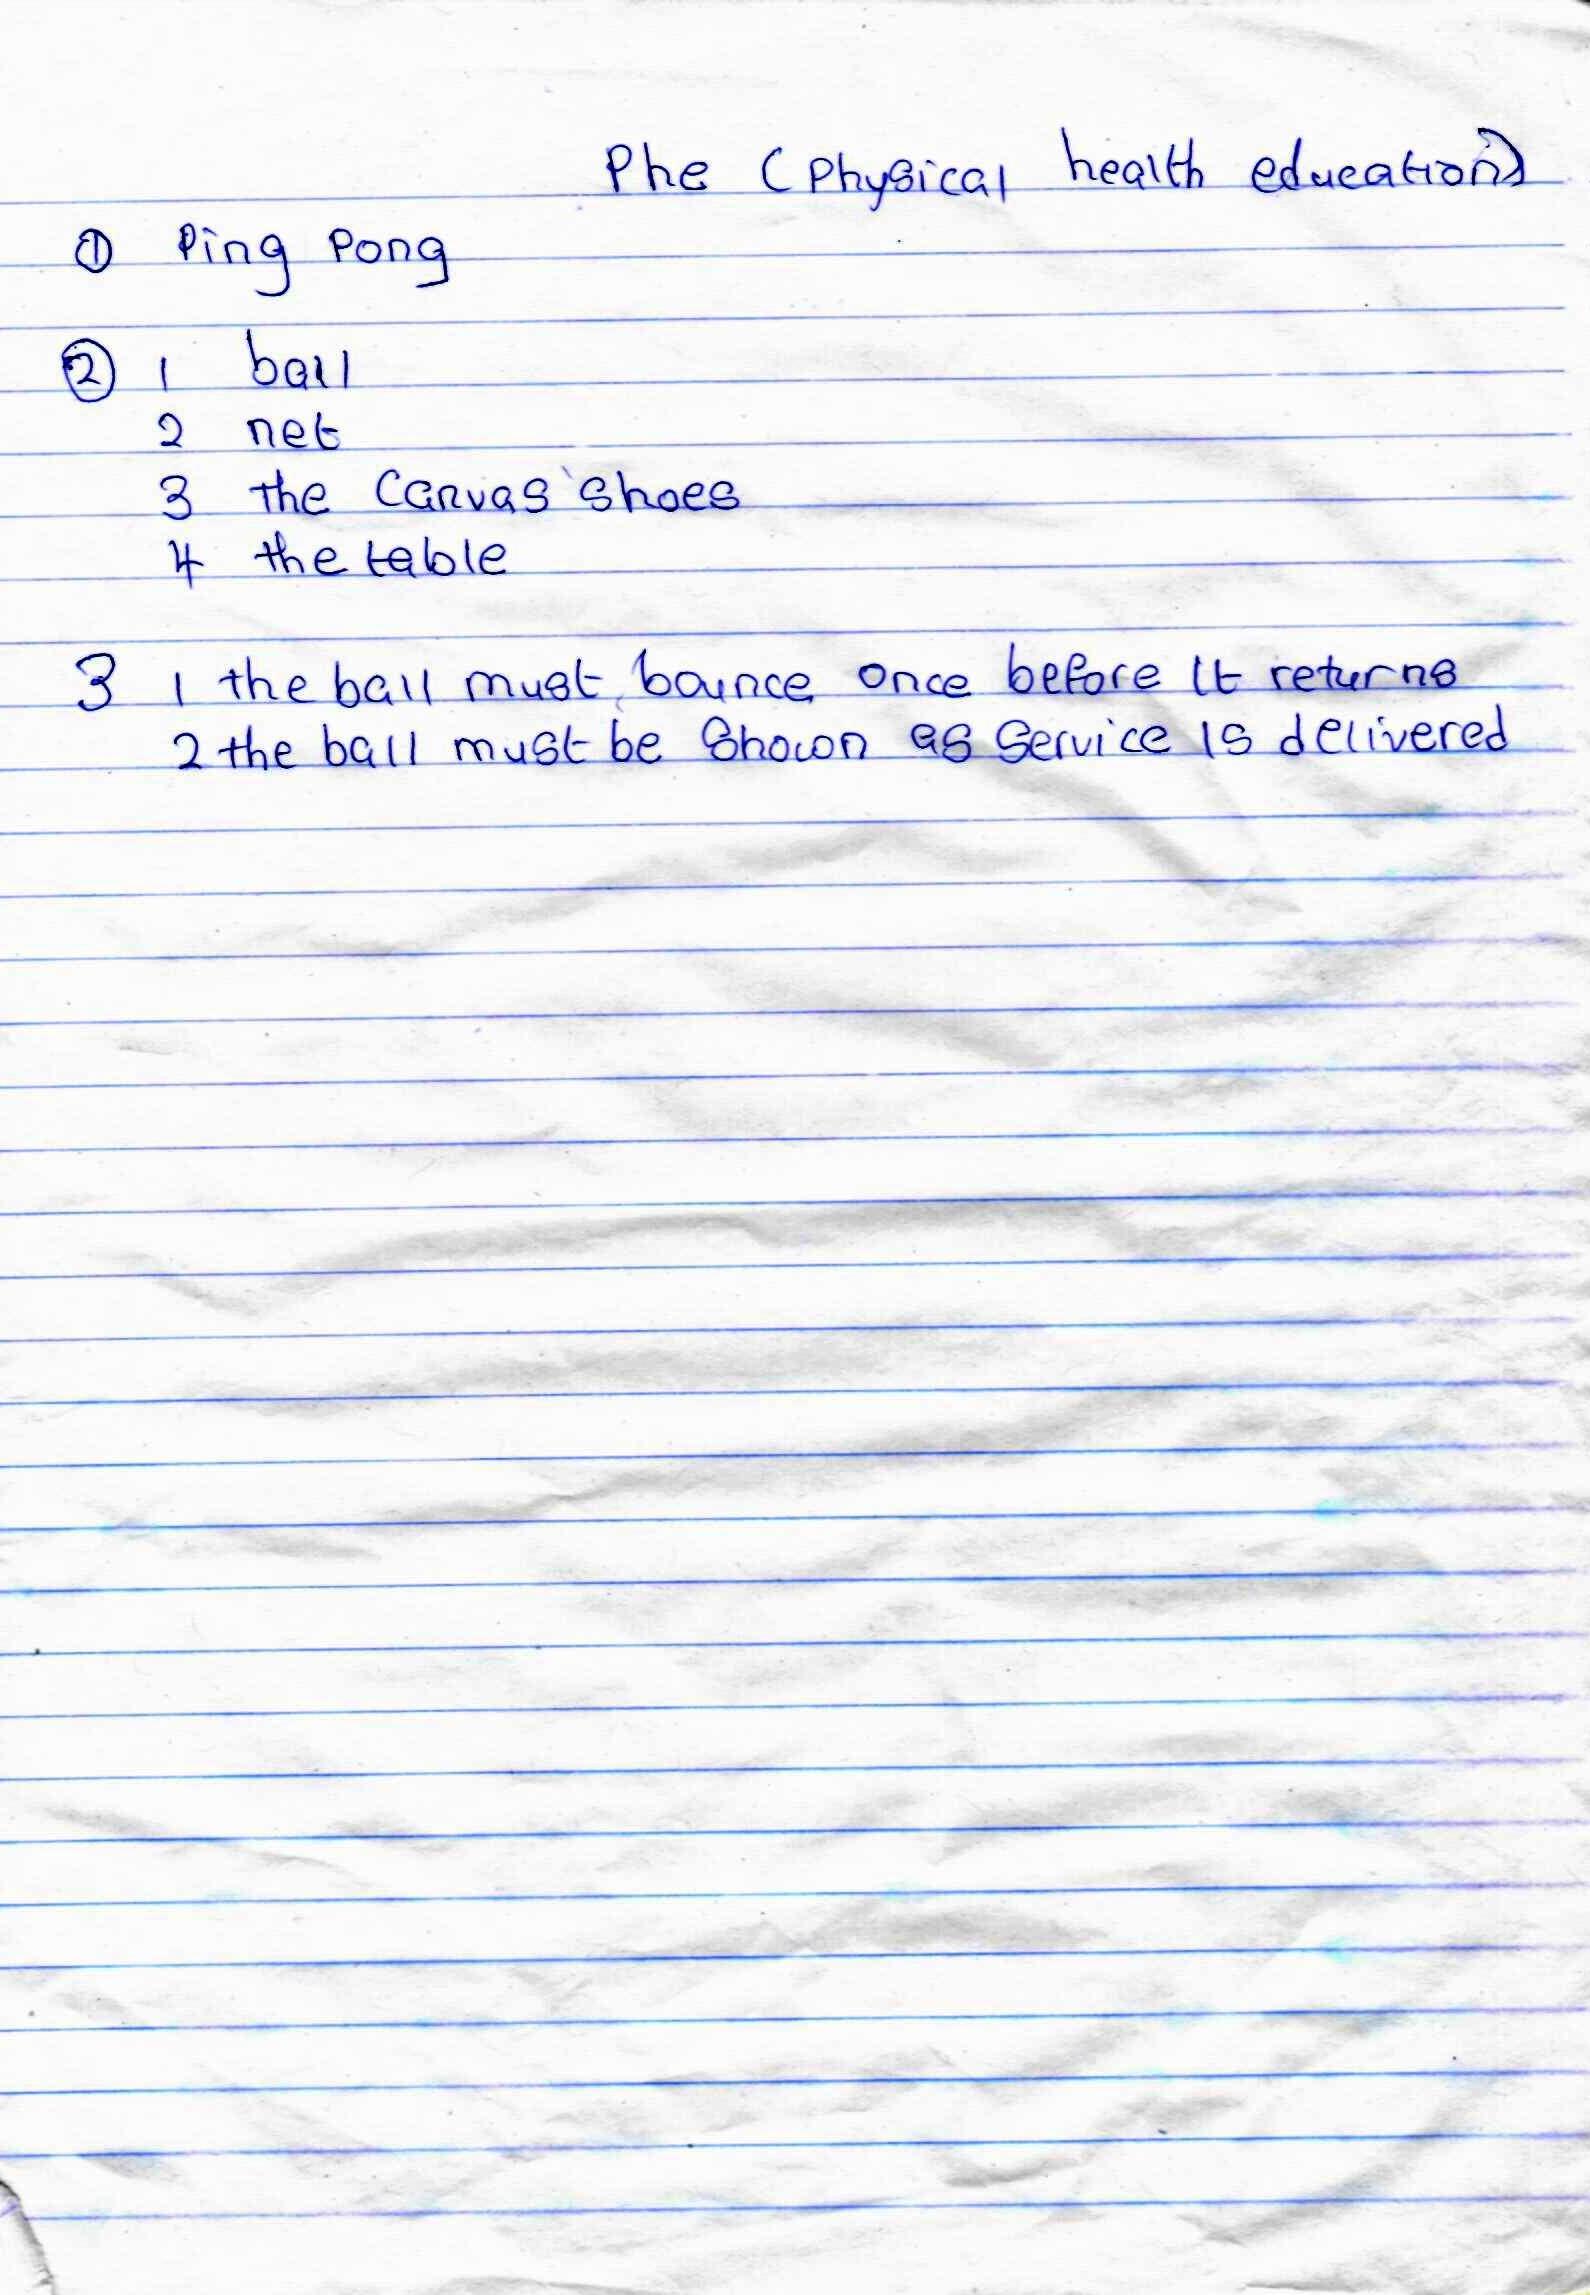 Phe (Physical health education)
① Ping Pong
② 1 ball
2 net
3 the Canvas shoes
4 the table
3 1 the ball must bounce once before It returns
2 the ball must be Shown as Service Is delivered